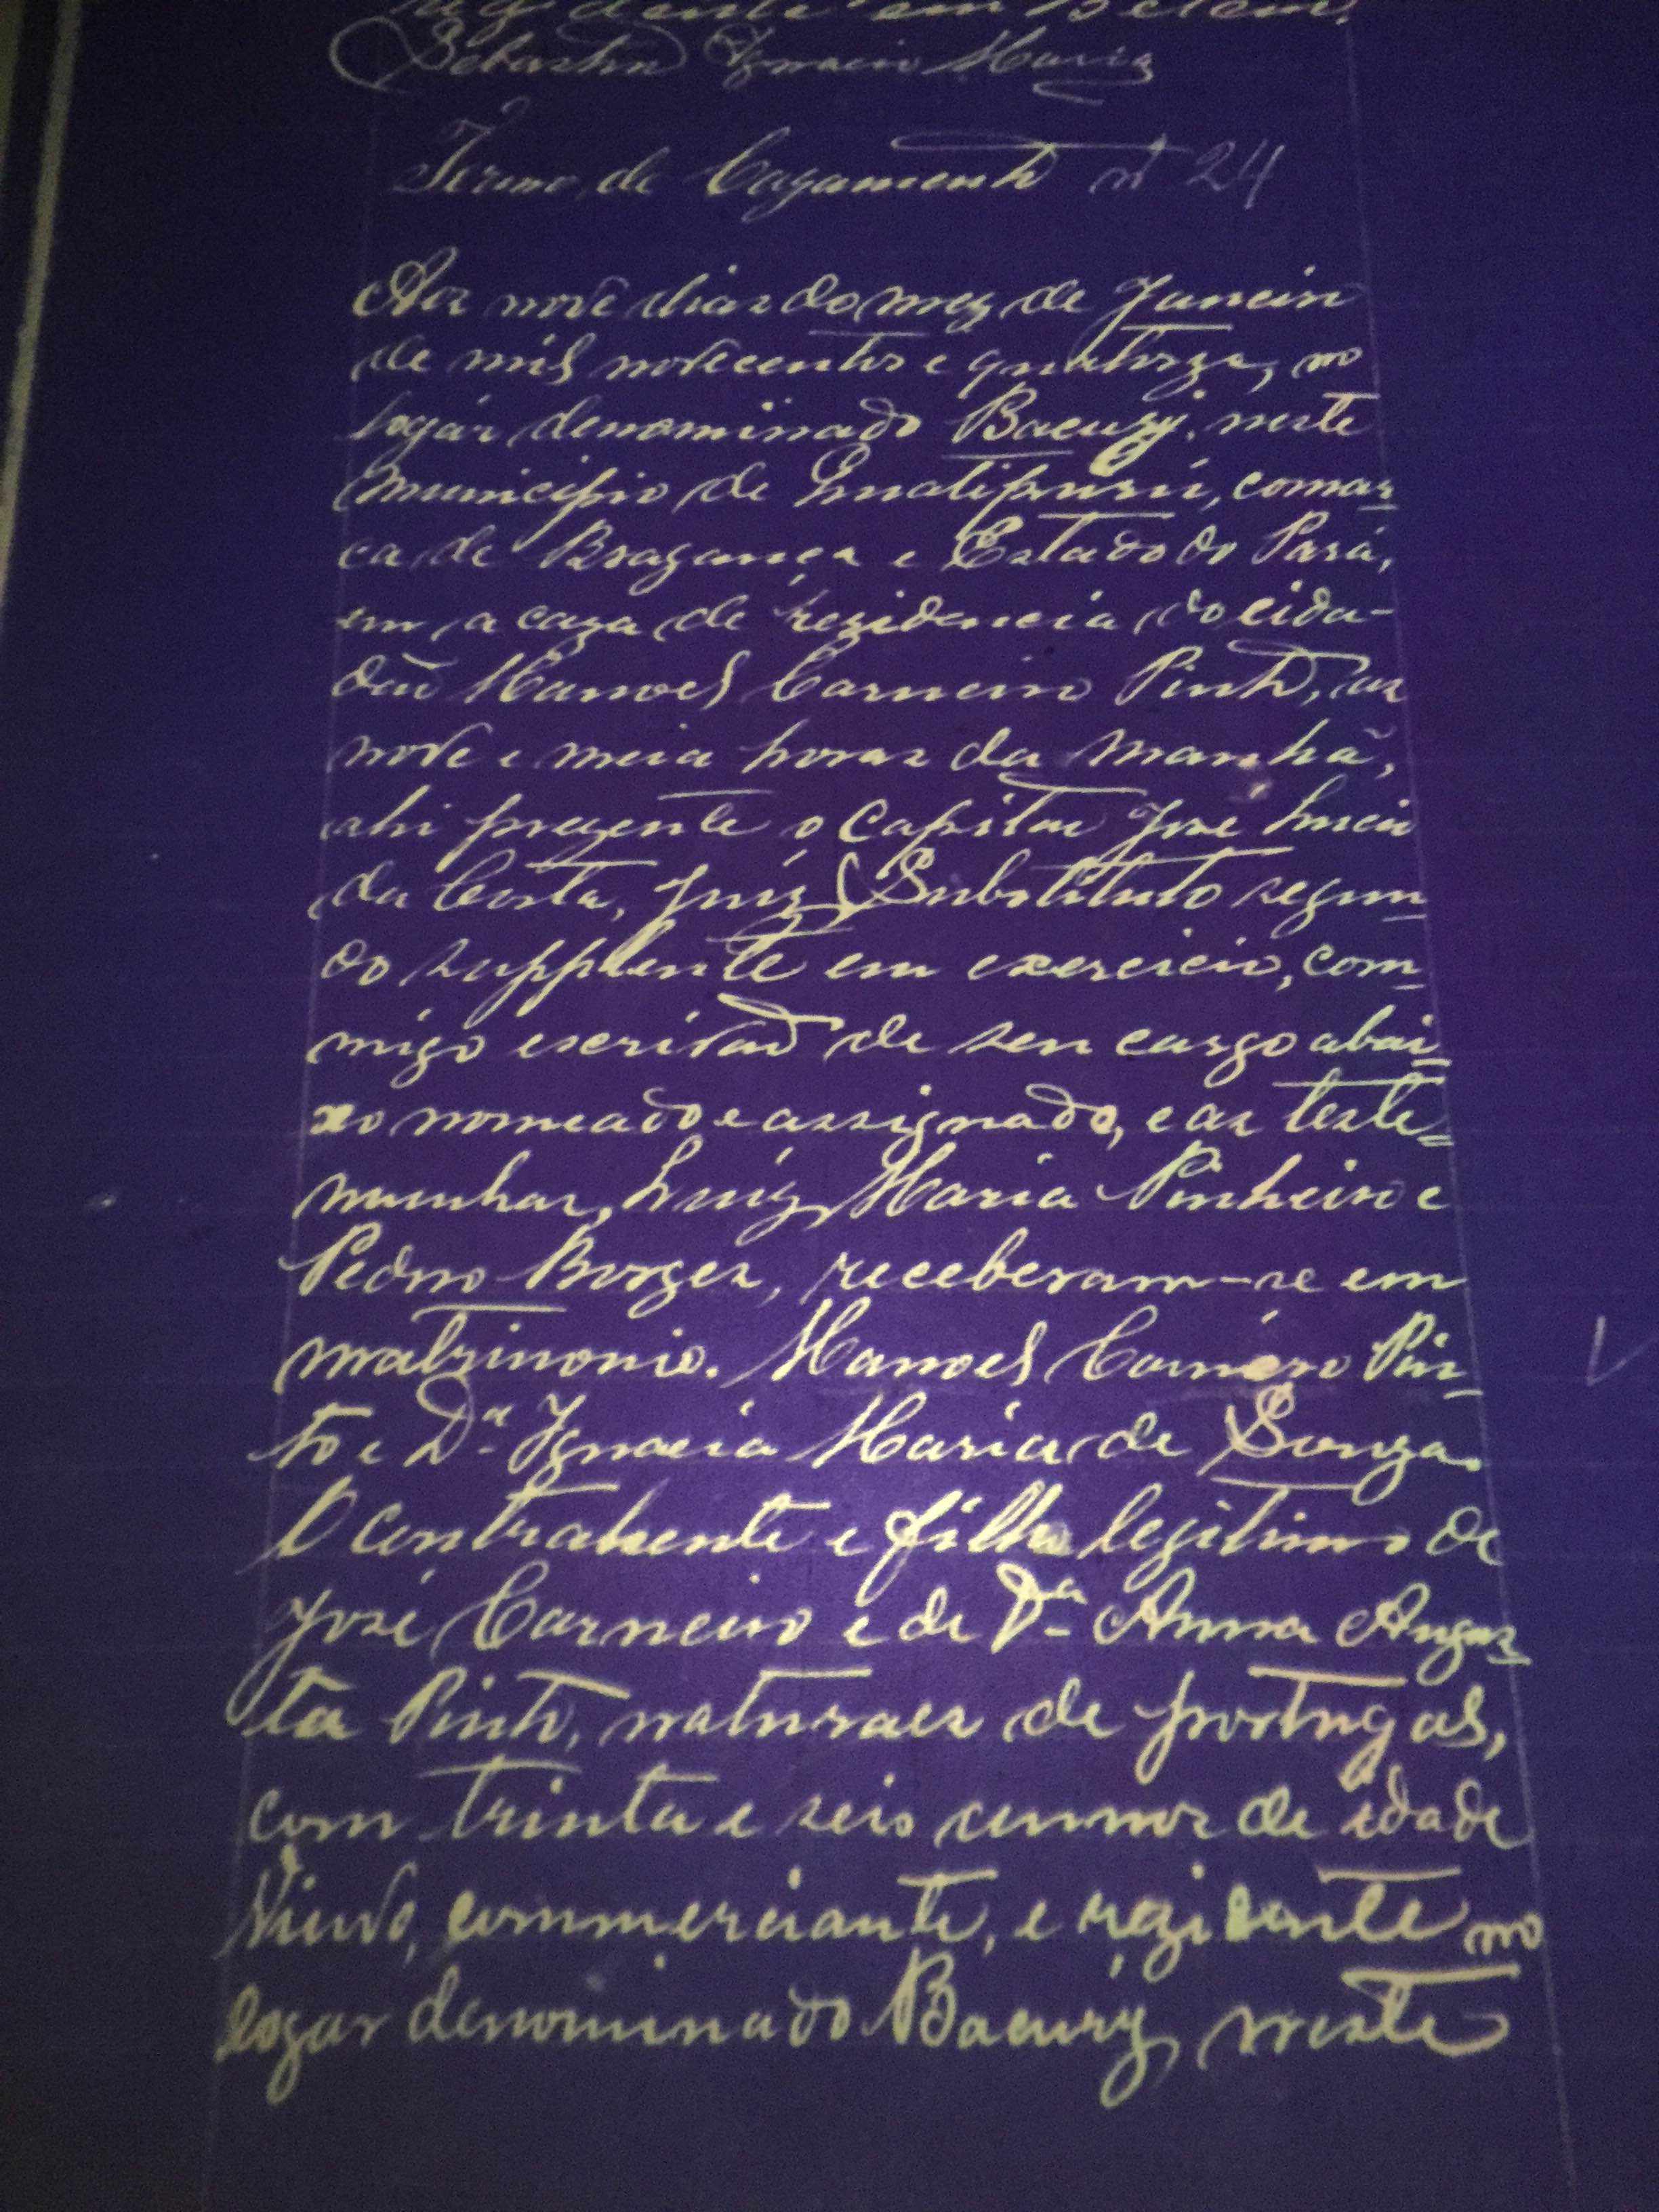 dente em Belem.
Sebastião Ignacio Maria
Termo de Cazamento nº 24
Aos nove dias do mez de Janeiro
de mil novecentos e quatorze, no
logár denominado Bacury, neste
Municipio de Quatipurú, comar
ca de Bragança e Estado do Pará,
em a caza de rezidencia do cida-
dão Manoel Carneiro Pinto, as
nove e meia horas da manhã,
ahi prezente o capitão José Lucio
da Costa, Juiz Substituto segun
do supplente em exercicio, com-
migo escrivão de seu cargo abai
xo nomeado e assignado, e as teste=
munhas, Luiz Maria Pinheiro e
Pedro Borges, receberam-se em
matrimonio. Manoel Carneiro Pin-
to e D.ª Ignacia Maria de Souza.
O contrahente e filho legitimo de
José Carneiro e de D.ª Anna Augus
ta Pinto, naturaes de portugal,
com trinta e seis annos de idade
Viuvo, commerciante, e rezidente no
logar denominado Bacury, neste